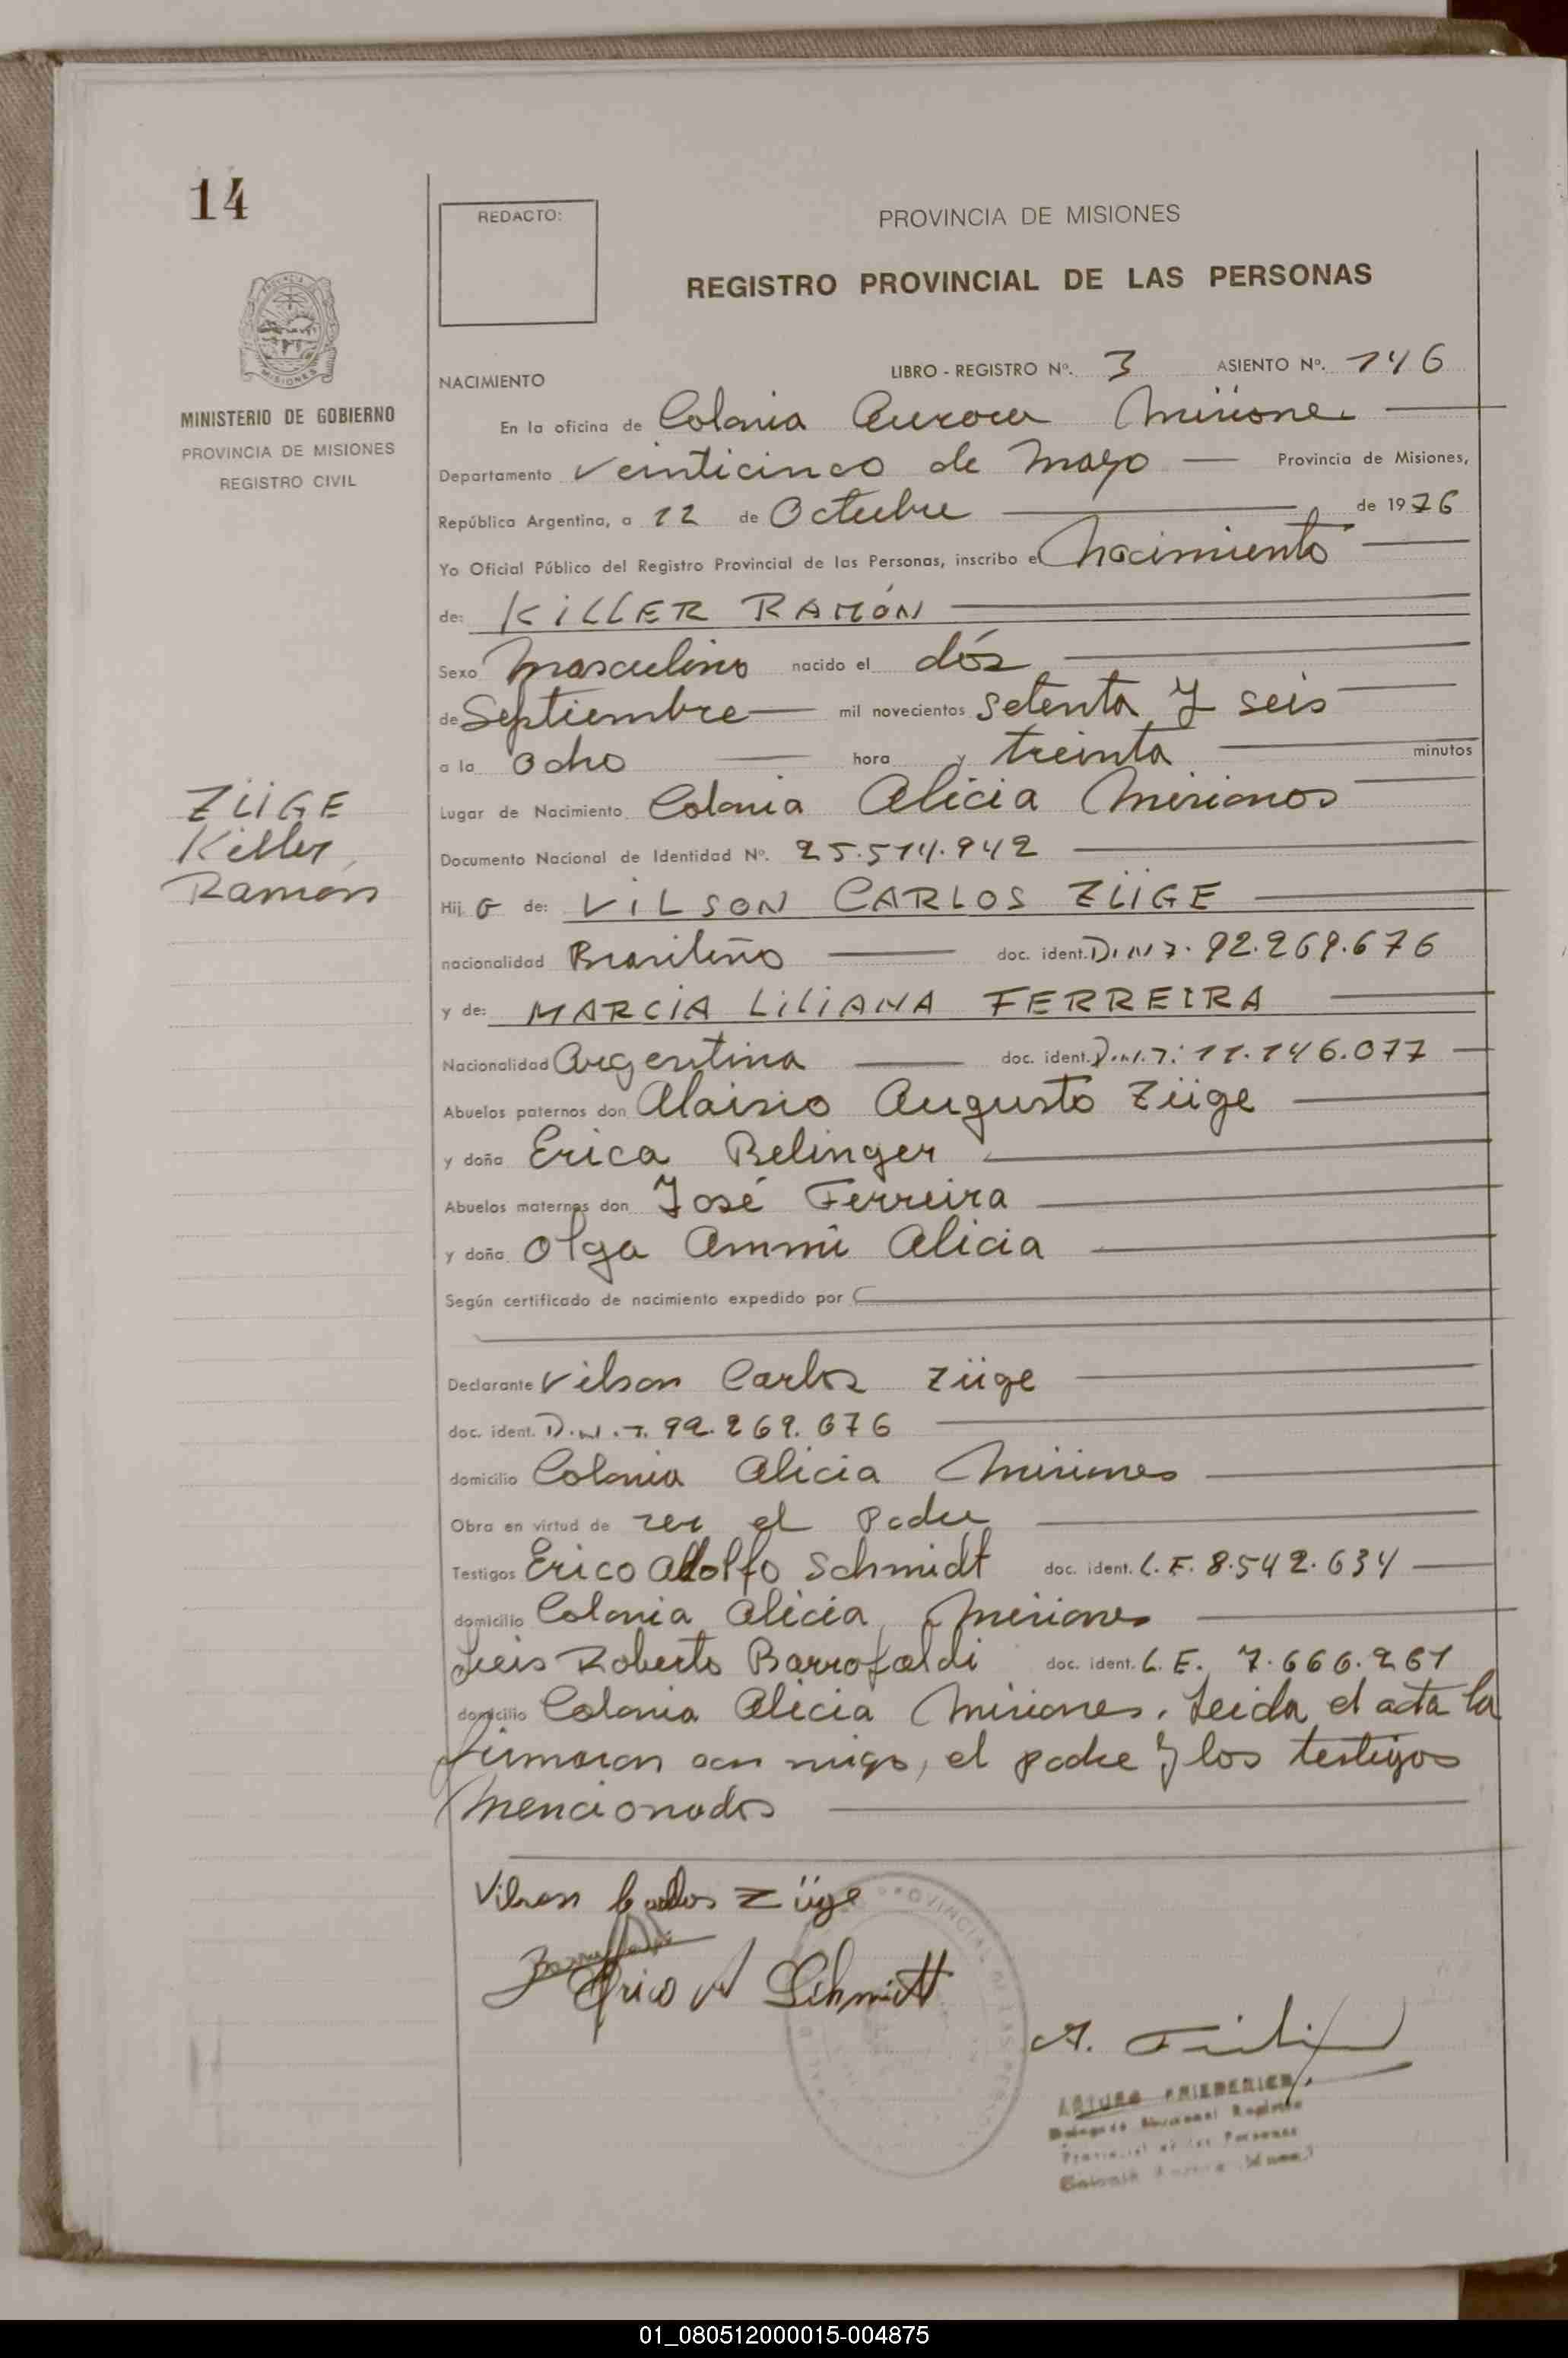 14
REDACTO:
PROVINCIA DE MISIONES
REGISTRO PROVINCIAL DE LAS PERSONAS
MISIONES
MINISTERIO DE GOBIERNO
PROVINCIA DE MISIONES
REGISTRO CIVIL
NACIMIENTO
LIBRO - REGISTRO Nº. 3 ASIENTO Nº. 146
En la oficina de Colonia Aurora Misiones
Departamento Veinticinco de Mayo Provincia de Misiones,
República Argentina, a 12 de Octubre de 1976
Yo Oficial Público del Registro Provincial de las Personas, inscribo el Nacimiento
de: KILLER RAMÓN
Sexo Masculino nacido el dós
de Septiembre mil novecientos setenta y seis
a la Ocho hora y treinta minutos
ZÜGE
Killer
Ramón
Lugar de Nacimiento Colonia Alicia Misiones
Documento Nacional de Identidad Nº. 25.514.942
Hij o de: VILSON CARLOS ZÜGE
nacionalidad Brasileño doc. ident. D.N.I. 92.269.676
y de: MARCIA LILIANA FERREIRA
Nacionalidad Argentina doc. ident. D.N.I. 11.146.077
Abuelos paternos don Aloisio Augusto Züge
y doña Erica Belinger
Abuelos maternos don José Ferreira
y doña Olga Ammi Alicia
Según certificado de nacimiento expedido por
Declarante Vilson Carlos Züge
doc. ident. D.N.I. 92.269.676
domicilio Colonia Alicia Misiones
Obra en virtud de ser el Padre
Testigos Erico Adolfo Schmidt doc. ident. L.E. 8.542.634
domicilio Colonia Alicia, Misiones
Luis Roberto Barrofaldi doc. ident. L.E. 7.666.261
domicilio Colonia Alicia Misiones. Leida el acta la
firmaron con migo, el padre y los testigos
Mencionados
Vilson Carlos Züge
Erico A Schmitt
ARTURO FRIEDERICH
Provincial de las Personas
01_080512000015-004875